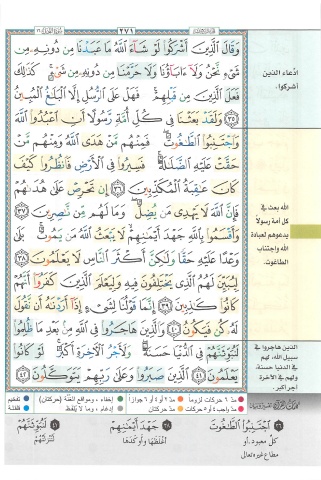 ٢٧١
وَقَالَ ٱلَّذِينَ أَشْرَكُوا۟ لَوْ شَآءَ ٱللَّهُ مَا عَبَدْنَا مِن دُونِهِۦ مِن
شَىْءٍ نَّحْنُ وَلَآ ءَابَآؤُنَا وَلَا حَرَّمْنَا مِن دُونِهِۦ مِن شَىْءٍ كَذَٰلِكَ
فَعَلَ ٱلَّذِينَ مِن قَبْلِهِمْ فَهَلْ عَلَى ٱلرُّسُلِ إِلَّا ٱلْبَلَٰغُ ٱلْمُبِينُ
٣٥ وَلَقَدْ بَعَثْنَا فِى كُلِّ أُمَّةٍ رَّسُولًا أَنِ ٱعْبُدُوا۟ ٱللَّهَ
وَٱجْتَنِبُوا۟ ٱلطَّٰغُوتَ فَمِنْهُم مَّنْ هَدَى ٱللَّهُ وَمِنْهُم مَّنْ
حَقَّتْ عَلَيْهِ ٱلضَّلَٰلَةُ فَسِيرُوا۟ فِى ٱلْأَرْضِ فَٱنظُرُوا۟ كَيْفَ
كَانَ عَٰقِبَةُ ٱلْمُكَذِّبِينَ ٣٦ إِن تَحْرِصْ عَلَىٰ هُدَىٰهُمْ
فَإِنَّ ٱللَّهَ لَا يَهْدِى مَن يُضِلُّ وَمَا لَهُم مِّن نَّٰصِرِينَ ٣٧
وَأَقْسَمُوا۟ بِٱللَّهِ جَهْدَ أَيْمَٰنِهِمْ لَا يَبْعَثُ ٱللَّهُ مَن يَمُوتُ بَلَىٰ
وَعْدًا عَلَيْهِ حَقًّا وَلَٰكِنَّ أَكْثَرَ ٱلنَّاسِ لَا يَعْلَمُونَ ٣٨
لِيُبَيِّنَ لَهُمُ ٱلَّذِى يَخْتَلِفُونَ فِيهِ وَلِيَعْلَمَ ٱلَّذِينَ كَفَرُوٓا۟ أَنَّهُمْ
كَانُوا۟ كَٰذِبِينَ ٣٩ إِنَّمَا قَوْلُنَا لِشَىْءٍ إِذَآ أَرَدْنَٰهُ أَن نَّقُولَ
لَهُۥ كُن فَيَكُونُ ٤٠ وَٱلَّذِينَ هَاجَرُوا۟ فِى ٱللَّهِ مِنۢ بَعْدِ مَا ظُلِمُوا۟
لَنُبَوِّئَنَّهُمْ فِى ٱلدُّنْيَا حَسَنَةً وَلَأَجْرُ ٱلْءَاخِرَةِ أَكْبَرُ لَوْ كَانُوا۟
يَعْلَمُونَ ٤١ ٱلَّذِينَ صَبَرُوا۟ وَعَلَىٰ رَبِّهِمْ يَتَوَكَّلُونَ ٤٢
ادّعاء الذين
أشركوا.
الله بعث في
كل أمة رسولاً
يدعوهم لعبادة
الله واجتناب
الطاغوت.
الذين هاجروا في
سبيل الله، لهم
في الدنيا حسنة،
ولهم في الآخرة
أكبر
مدّ ٦ حركات لزوماً مدّ ٢ أو ٤ أو ٦ جوازاً إخفاء، ومواقع الغنّة (حركتان) تفخيم
مدّ واجب ٤ أو ٥ حركات مدّ حركتان إدغام، وما لا يُلفظ قلقلة
٣٦ ٱجْتَنِبُوا۟ ٱلطَّٰغُوتَ
كلّ معبود، أو
مطاع غير الله تعالى
٣٨ جَهْدَ أَيْمَٰنِهِمْ
أغلظها وأوكدها
٤١ لَنُبَوِّئَنَّهُمْ
لننزلنّهم